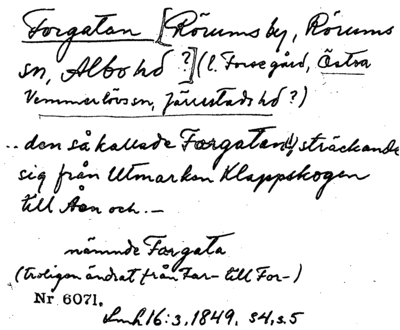 Forgatan [Rörums by, Rörums
sn, Albo hd ?] (l. Forsegård, Östra
Vemmerlövs sn, Järrestads hd ?)
.. den så kallade Forgatan(!) sträckande
sig från Utmarken Klappskogen
till Åen och. —
nämnde Forgata
(troligen ändrat från Far- till For-)
Nr 6071.
Lmh 16:3, 1849, s4, s.5